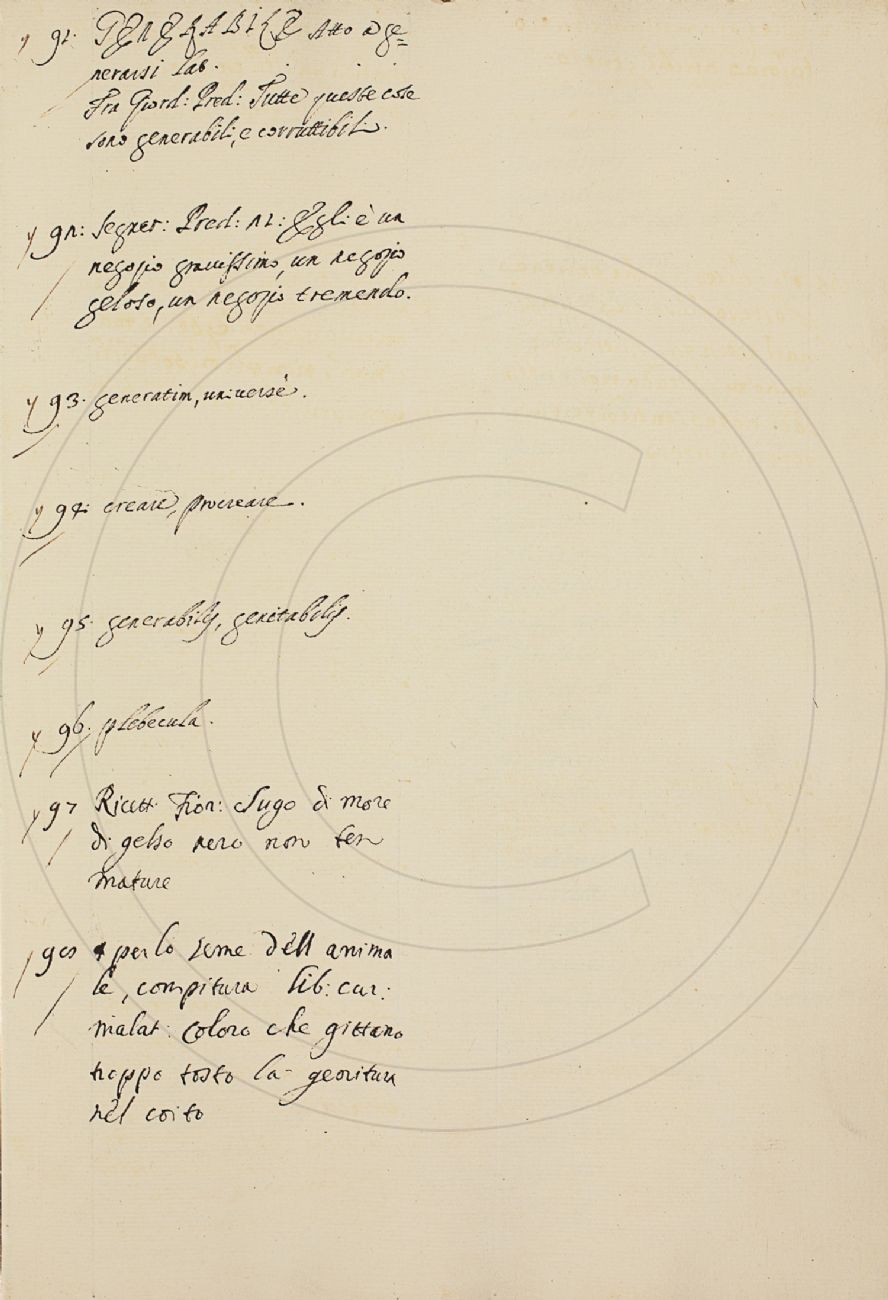 91. GENERABILE Atto a ge=
nerarsi Lat.
Fra Giord: Pred: Tutte queste cose
sono generabili, e corruttibili.
92: Segner: Pred: 12: Egli è un
negozio gravissimo, un negozio
geloso, un negozio tremendo.
93. generatim, universè.
94: creare, procreare.
95. generabilis, genitabilis.
96. plebecula.
97 Ricett. Fior: Sugo di more
di gelso nero non ben
mature
98 per lo seme dell anima
le, compitura lib: cur:
malat: coloro che gittano
troppo tosto la genitura
nel coito